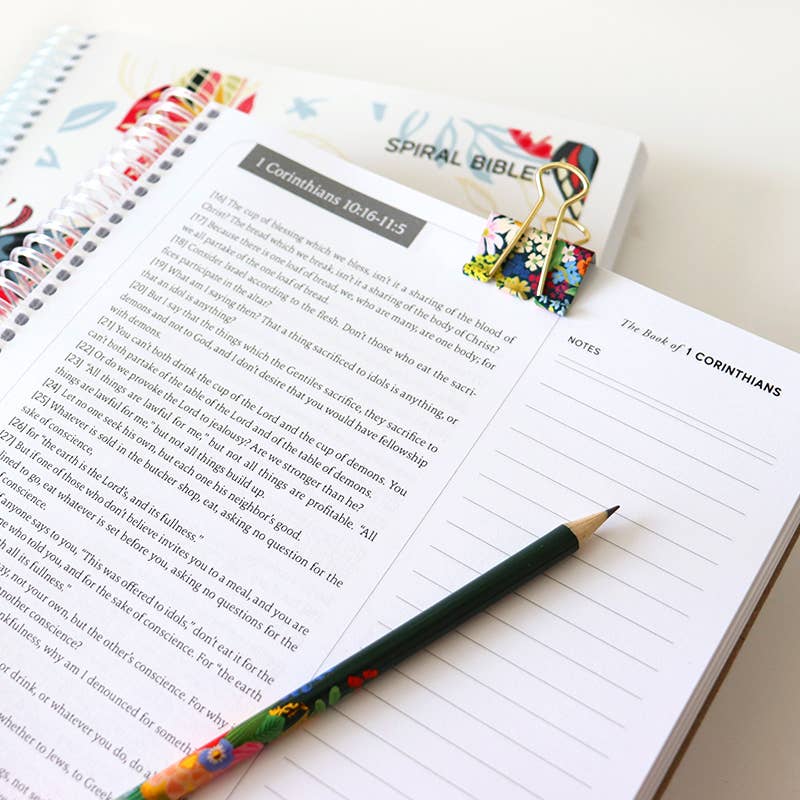 SPIRAL BIBLE
1 Corinthians 10:16-11:5
[16] The cup of blessing which we bless, isn't it a sharing of the blood of
Christ? The bread which we break, isn't it a sharing of the body of Christ?
[17] Because there is one loaf of bread, we, who are many, are one body; for
we all partake of the one loaf of bread.
[18] Consider Israel according to the flesh. Don't those who eat the sacri-
fices participate in the altar?
[19] What am I saying then? That a thing sacrificed to idols is anything, or
that an idol is anything?
[20] But I say that the things which the Gentiles sacrifice, they sacrifice to
demons and not to God, and I don't desire that you would have fellowship
with demons.
[21] You can't both drink the cup of the Lord and the cup of demons. You
can't both partake of the table of the Lord and of the table of demons.
[22] Or do we provoke the Lord to jealousy? Are we stronger than he?
[23] "All things are lawful for me," but not all things are profitable. "All
things are lawful for me," but not all things build up.
[24] Let no one seek his own, but each one his neighbor's good.
[25] Whatever is sold in the butcher shop, eat, asking no question for the
sake of conscience,
[26] for "the earth is the Lord's, and its fullness."
[27] But if one of those who don't believe invites you to a meal, and you are
lined to go, eat whatever is set before you, asking no questions for the
of conscience.
anyone says to you, "This was offered to idols," don't eat it for the
one who told you, and for the sake of conscience. For "the earth
th all its fullness."
ay, not your own, but the other's conscience. For why
another conscience?
nkfulness, why am I denounced for something
or drink, or whatever you do, do all
whether to Jews, to Greek
ings, not see
The Book of 1 CORINTHIANS
NOTES